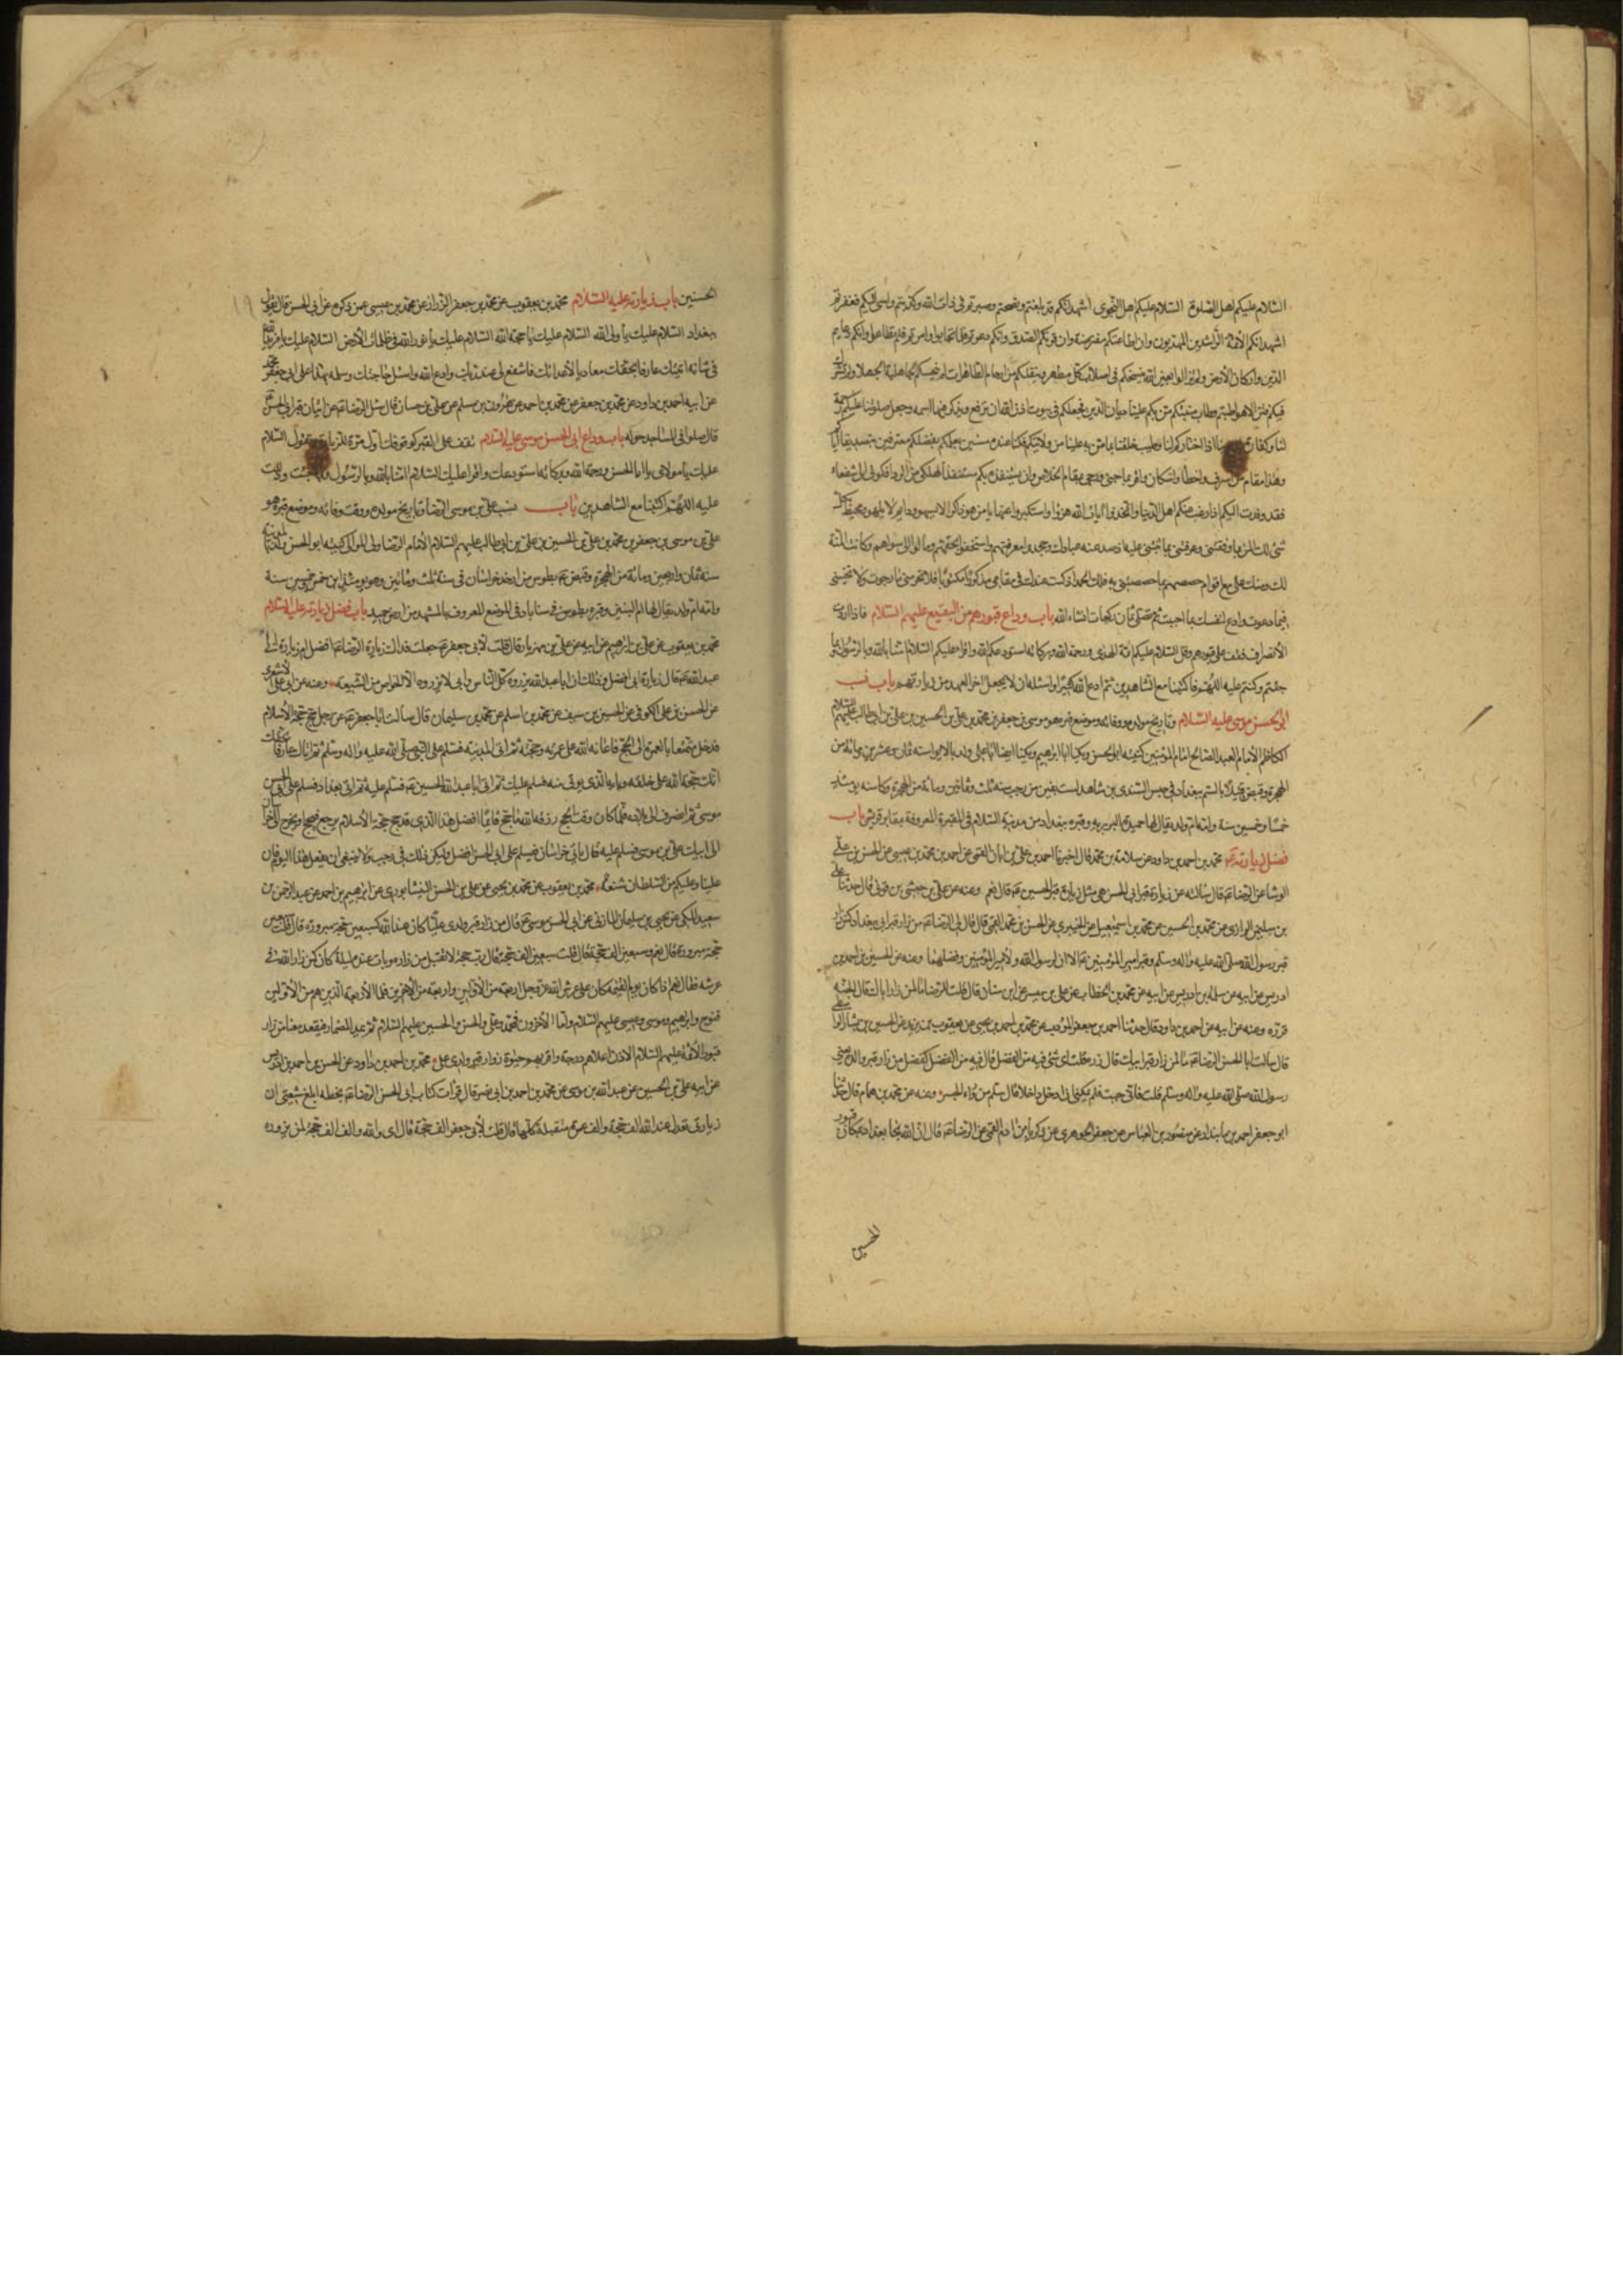 السلام عليكم اهل الصلوة السلام عليكم اهل النجوى اشهد انكم قد بلغتم ونصحتم وصبرتم في ذات الله وكذبتم واسئ اليكم فغفرتم
اشهد انكم الأئمة الراشدون المهتدون وان طاعتكم مفترضة وان قولكم الصدق وانكم دعوتم فلم تجابوا وامرتم فلم تطاعوا وانكم دعايم
الدين واركان الأرض لم تزالوا بعين الله ينسخكم في اصلاب كل مطهر وينقلكم من ارحام المطهرات لم تدنسكم الجاهلية الجهلاء ولم تشرك
فيكم فتن الاهواء طبتم وطاب منبتكم من بكم علينا ديان الدين فجعلكم في بيوت اذن الله ان ترفع ويذكر فيها اسمه وجعل صلوتنا عليكم رحمة
لنا وكفارة اذا اختاركم لنا وطيب خلقنا بما من به علينا من ولايتكم فكنا عنده مسمين بعلمكم بفضلكم معترفين بتصديقنا اياكم
وهذا مقام من اسرف واخطأ واستكان واقر بما جنى ورجى بمقامه الخلاص وان يستنقذه بكم مستنقذ الهلكى من الردى فكونوا لي شفعاء
فقد وفدت اليكم اذ رغب عنكم اهل الدنيا واتخذوا آيات الله هزوا واستكبروا عنها يا من هو ذاكر لا يسهو ودايم لا يلهو ومحيط بكل
شئ لك المن بما وفقتني وعرفتني بما ثبتني عليه اذ صد عنه عبادك وجحدوا معرفتهم واستخفوا بحقهم ومالوا الى سواهم وكانت المنة
لك ومنك على مع اقوام خصصتهم بما خصصتني به فلك الحمد اذ كنت عندك في مقامي مذكورا مكتوبا فلا تحرمني ما رجوت ولا تخيبني
فيما دعوت وادع لنفسك بما احببت ثم تصلي ثمان ركعات انشاء الله باب وداع قبورهم من البقيع عليهم السلام فاذا اردت
الأنصراف فقف على قبورهم وقل السلام عليكم ائمة الهدى ورحمة الله وبركاته استودعكم الله واقرا عليكم السلام امنا بالله وبالرسول وبما
جئتم به ودللتم عليه اللهم فاكتبنا مع الشاهدين ثم ادع الله كثيرا واسئله ان لا يجعل اخر العهد من زيارتهم باب نسب
ابي الحسن موسى عليه السلام وتاريخ مولده ووفاته وموضع قبره هو موسى بن جعفر بن محمد بن علي بن الحسين بن علي بن ابي طالب عليهم السلام
الكاظم الأمام العبد الصالح امام المؤمنين كنيته ابو الحسن ويكنى ابا ابراهيم ويكنى ايضا ابا علي ولد بالابواء سنة ثمان وعشرين ومائة من
الهجرة وقبض قتيلا بالسم ببغداد في حبس السندي بن شاهك لست بقين من رجب سنة ثلث وثمانين ومائة من الهجرة وكان سنه يومئذ
خمسا وخمسين سنة وامه ام ولد يقال لها حميدة البربرية وقبره ببغداد من مدينة السلام في المقبرة المعروفة بمقابر قريش باب
فضل زيارته محمد بن احمد بن داود عن سلامة بن محمد قال اخبرنا احمد بن علي بن ابان القمي عن احمد بن محمد بن عيسى عن الحسن بن علي
الوشا عن الرضا قال سالته عن زيارة قبر ابي الحسن هي مثل زيارة قبر الحسين قال نعم وعنه عن علي بن حبشي بن قوني قال حدثنا علي
بن سليمن الرازي عن محمد بن الحسين عن محمد بن اسمعيل عن الخيبري عن الحسن بن محمد القمي قال قال لي الرضا من زار قبر ابي ببغداد كمن زار
قبر رسول الله صلى الله عليه واله وسلم وقبر امير المؤمنين الا ان لرسول الله ولأمير المؤمنين فضلهما وعنه عن الحسين بن احمد بن
ادريس عن ابيه عن سلمة بن ادريس عن ابيه عن محمد بن الخطاب عن علي بن ميسر عن ابن سنان قال قلت للرضا ما لمن زار اباك قال الجنة
فزره وعنه عن ابيه عن احمد بن داود قال حدثنا احمد بن جعفر المؤدب عن محمد بن احمد بن يحيى عن يعقوب بن يزيد عن الحسين بن بشار الواسطي
قال سالت ابا الحسن الرضا ما لمن زار قبر ابيك قال زره قلت اي شئ فيه من الفضل قال فيه من الفضل كفضل من زار قبر والده يعني
رسول الله صلى الله عليه واله وسلم قلت فاني خبت فلم يمكنني ان ادخل داخلا قال سلم من وراء الجسر وعنه عن محمد بن همام قال حدثنا
ابو جعفر احمد بن مابنداد عن منصور بن العباس عن جعفر الجوهري عن زكريا بن ادم القمي عن الرضا قال ان الله نجا بغداد بمكان قبور
الحسين
الحسنيين باب زيارته عليه السلام محمد بن يعقوب عن محمد بن جعفر الرزاز عن محمد بن عيسى عمن ذكره عن ابي الحسن قال تقول
ببغداد السلام عليك يا ولي الله السلام عليك يا حجة الله السلام عليك يا نور الله في ظلمات الأرض السلام عليك يا من بدا لله
في شأنه اتيتك عارفا بحقك معاديا لأعدائك فاشفع لي عند ربك وادع الله واسئل حاجتك وسلم بهذا على ابي جعفر محمد
عن ابيه احمد بن داود عن محمد بن جعفر عن محمد بن احمد عن هرون بن مسلم عن علي بن حسان قال سئل الرضا عن اتيان قبر ابي الحسن
قال صلوا في المساجد حوله باب وداع ابي الحسن موسى عليه السلام تقف على القبر كوقوفك اول مرة للزيارة وتقول السلام
عليك يا مولاي يا ابا الحسن ورحمة الله وبركاته استودعك واقرا عليك السلام امنا بالله وبالرسول وبما جئت به ودللت
عليه اللهم اكتبنا مع الشاهدين باب نسب علي بن موسى الرضا وتاريخ مولده ووقت وفاته وموضع قبره هو
علي بن موسى بن جعفر بن محمد بن علي بن الحسين بن علي بن ابي طالب عليهم السلام الأمام الرضا ولي المؤمنين كنيته ابو الحسن ولد بالمدينة
سنة ثمان واربعين ومائة من الهجرة وقبض بطوس من ارض خراسان في سنة ثلث ومائتين وهو يومئذ ابن خمس وخمسين سنة
وامه ام ولد يقال لها ام البنين وقبره بطوس في سناباد في الموضع المعروف بالمشهد من ارض حميد باب فضل زيارته عليه السلام
محمد بن يعقوب عن علي بن ابراهيم عن ابيه عن علي بن مهزيار قال قلت لأبي جعفر جعلت فداك زيارة الرضا افضل ام زيارة ابي
عبد الله قال زيارة ابي افضل وذلك ان ابا عبد الله يزوره كل الناس وابي لا يزوره الا الخواص من الشيعة وعنه عن ابي علي الأشعري
عن الحسن بن علي الكوفي عن الحسين بن سيف عن محمد بن اسلم عن محمد بن سليمان قال سألت ابا جعفر عن رجل حج حجة الأسلام
فدخل متمتعا بالعمرة الى الحج فاعانه الله على عمرته وحجته ثم اتى المدينة فسلم على النبي صلى الله عليه واله وسلم ثم اتاك عارفا بحقك
انك حجة الله على خلقه وبابه الذي يؤتى منه فسلم عليك ثم اتى ابا عبد الله الحسين فسلم عليه ثم اتى بغداد فسلم على ابي الحسن
موسى ثم انصرف الى بلاده فلما كان وقت الحج رزقه الله ما يحج فايما افضل هذا الذي قد حج حجة الأسلام يرجع فيحج او يخرج الى خراسان
الى ابيك علي بن موسى فيسلم عليه قال يأتي خراسان فيسلم على ابي الحسن افضل وليكن ذلك في رجب ولا ينبغي ان تفعل هذا اليوم فان
علينا وعليكم من السلطان شنعة محمد بن يعقوب عن محمد بن يحيى عن علي بن الحسن النيشابوري عن ابرهيم بن احمد عن عبد الرحمن بن
سعيد المكي عن يحيى بن سليمان المازني عن ابي الحسن موسى قال من زار قبر ولدي علي كان عند الله كسبعين حجة مبرورة قال قلت سبعين
حجة مبرورة قال نعم وسبعين الف حجة قال قلت سبعين الف حجة قال رب حجة لا تقبل من زاره وبات عنده ليلة كان كمن زار الله في
عرشه فقال نعم اذا كان يوم القيمة كان على عرش الله عز وجل اربعة من الأولين واربعة من الأخرين فاما الأربعة الذين هم من الأولين
فنوح وابرهيم وموسى وعيسى عليهم السلام واما الأخرون فمحمد وعلي والحسن والحسين عليهم السلام ثم يمد المضمار فيقعد معنا من زار
قبور الأئمة عليهم السلام الا ان اعلاهم درجة واقربهم حبوة زوار قبر ولدي علي محمد بن احمد بن داود عن الحسن بن احمد بن ادريس
عن ابيه علي بن الحسين عن عبد الله بن موسى عن محمد بن احمد بن ابي نصر قال قرأت كتاب ابي الحسن الرضا بخطه ابلغ شيعتي ان
زيارتي تعدل عند الله الف حجة والف عمرة متقبلة كلها قال قلت لأبي جعفر الف حجة قال اي والله والف الف حجة لمن يزوره